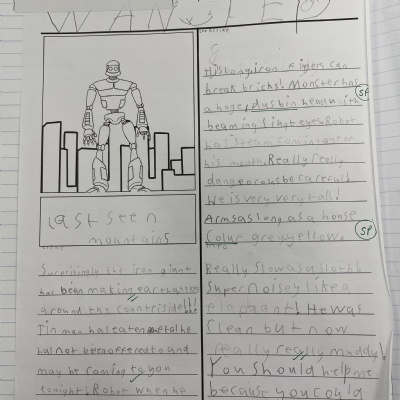 WANTED
last seen
mountains
Surprisingly the iron giant
has been making earthquakes
around the countriside!!!
Tin man has eaten metal he
has not been offered to and
may be coming to you
tonight! Robot when he
His long iron fingers can
break bricks! Monster has
a huge, dusbin head with
beaming light eyes. Robot
has steam coming out of
his mouth, Really really
dangerous be careful!
He is very very tall!
Arms as long as a house
Colur grey yellow.
SP
SP
Really slow as a sloth!
Super noisey like a
elaphant! He was
Clean but now
really really muddy!
You should help me
because you could